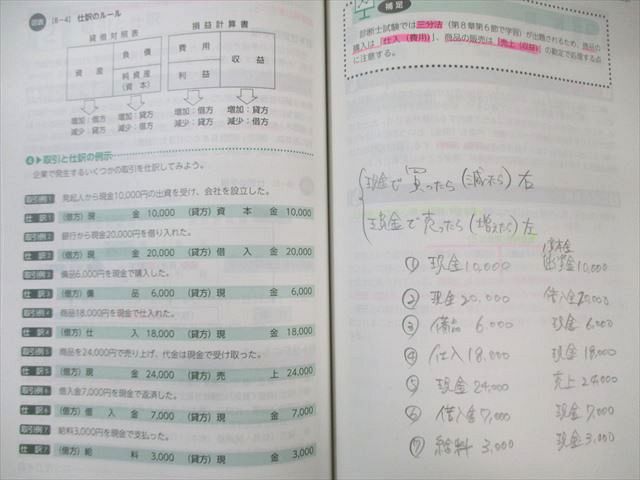 図表 [8-4] 仕訳のルール
貸借対照表
損益計算書
資産
負債
純資産
(資本)
費用
利益
収益
増加:借方
減少:貸方
増加:貸方
減少:借方
増加:借方
減少:貸方
増加:貸方
減少:借方
④▶取引と仕訳の例示
企業で発生するいくつかの取引を仕訳してみよう。
取引例1 発起人から現金10,000円の出資を受け、会社を設立した。
仕訳1 (借方)現金 10,000 (貸方)資本金 10,000
取引例2 銀行から現金20,000円を借り入れた。
仕訳2 (借方)現金 20,000 (貸方)借入金 20,000
取引例3 備品6,000円を現金で購入した。
仕訳3 (借方)備品 6,000 (貸方)現金 6,000
取引例4 商品18,000円を現金で仕入れた。
仕訳4 (借方)仕入 18,000 (貸方)現金 18,000
取引例5 商品を24,000円で売り上げ、代金は現金で受け取った。
仕訳5 (借方)現金 24,000 (貸方)売上 24,000
取引例6 借入金7,000円を現金で返済した。
仕訳6 (借方)借入金 7,000 (貸方)現金 7,000
取引例7 給料3,000円を現金で支払った。
仕訳7 (借方)給料 3,000 (貸方)現金 3,000
補足
診断士試験では三分法(第8章第6節で学習)が出題されるため、商品の
購入は「仕入(費用)」、商品の販売は「売上(収益)」の勘定で処理する点
に注意する。
現金で買ったら(減ったら)右
現金で売ったら(増えたら)左
資本金
① 現金10,000 出資金10,000
② 現金20,000 借入金20,000
③ 備品 6,000 現金 6,000
④ 仕入18,000 現金 18,000
⑤ 現金24,000 売上 24,000
⑥ 借入金7,000 現金 7,000
⑦ 給料 3,000 現金 3,000